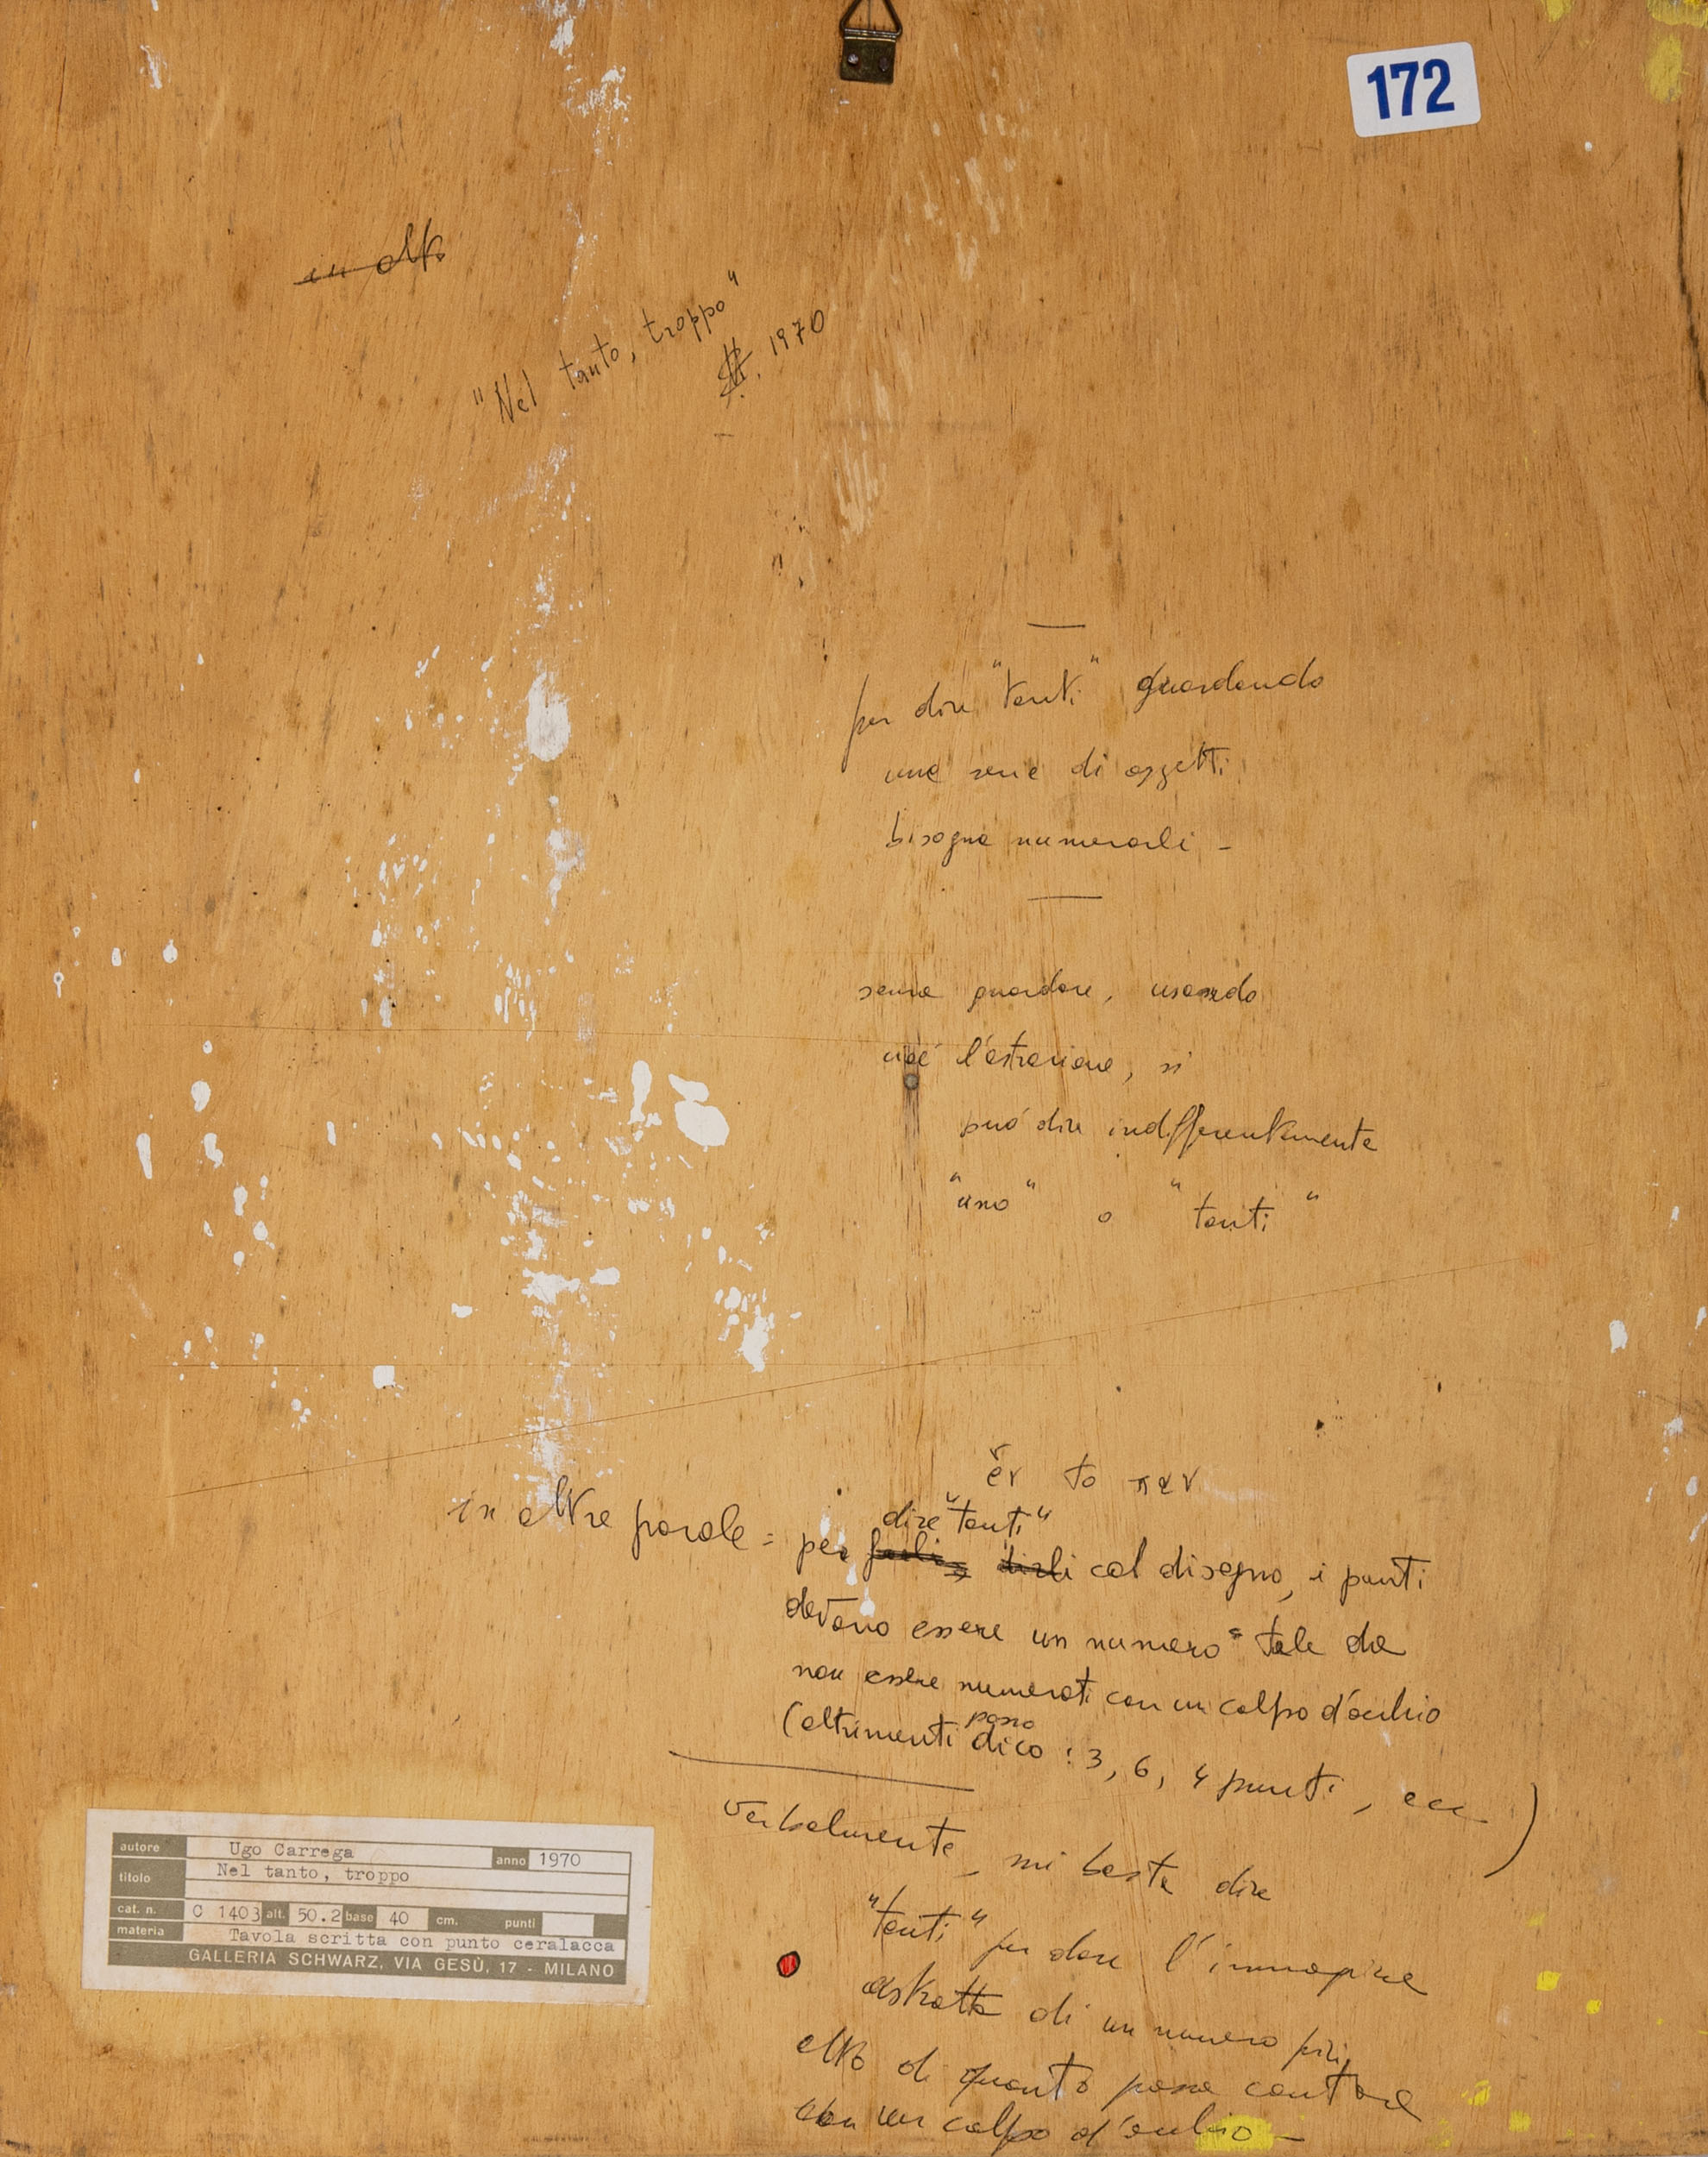 172
in alto
"Nel tanto, troppo"
1970
per dire "tanti" guardando
una serie di oggetti
bisogna numerarli -
senza guardare, usando
cioè l'astrazione, si
può dire indifferentemente
"uno" o "tanti"
ἓν το παν
dire "tanti"
in altre parole = per col disegno, i punti
devono essere un numero tale da
non essere numerati con un colpo d'occhio
posso
(altrimenti dico : 3, 6, 4 punti, ecc )
verbalmente, mi basta dire
"tanti" per dare l'immagine
astratta di un numero più
alto di quanto possa contare
con un colpo d'occhio -
autore Ugo Carrega anno 1970
titolo Nel tanto, troppo
cat. n. C 1403 alt. 50.2 base 40 cm. punti
materia Tavola scritta con punto ceralacca
GALLERIA SCHWARZ, VIA GESÙ, 17 - MILANO